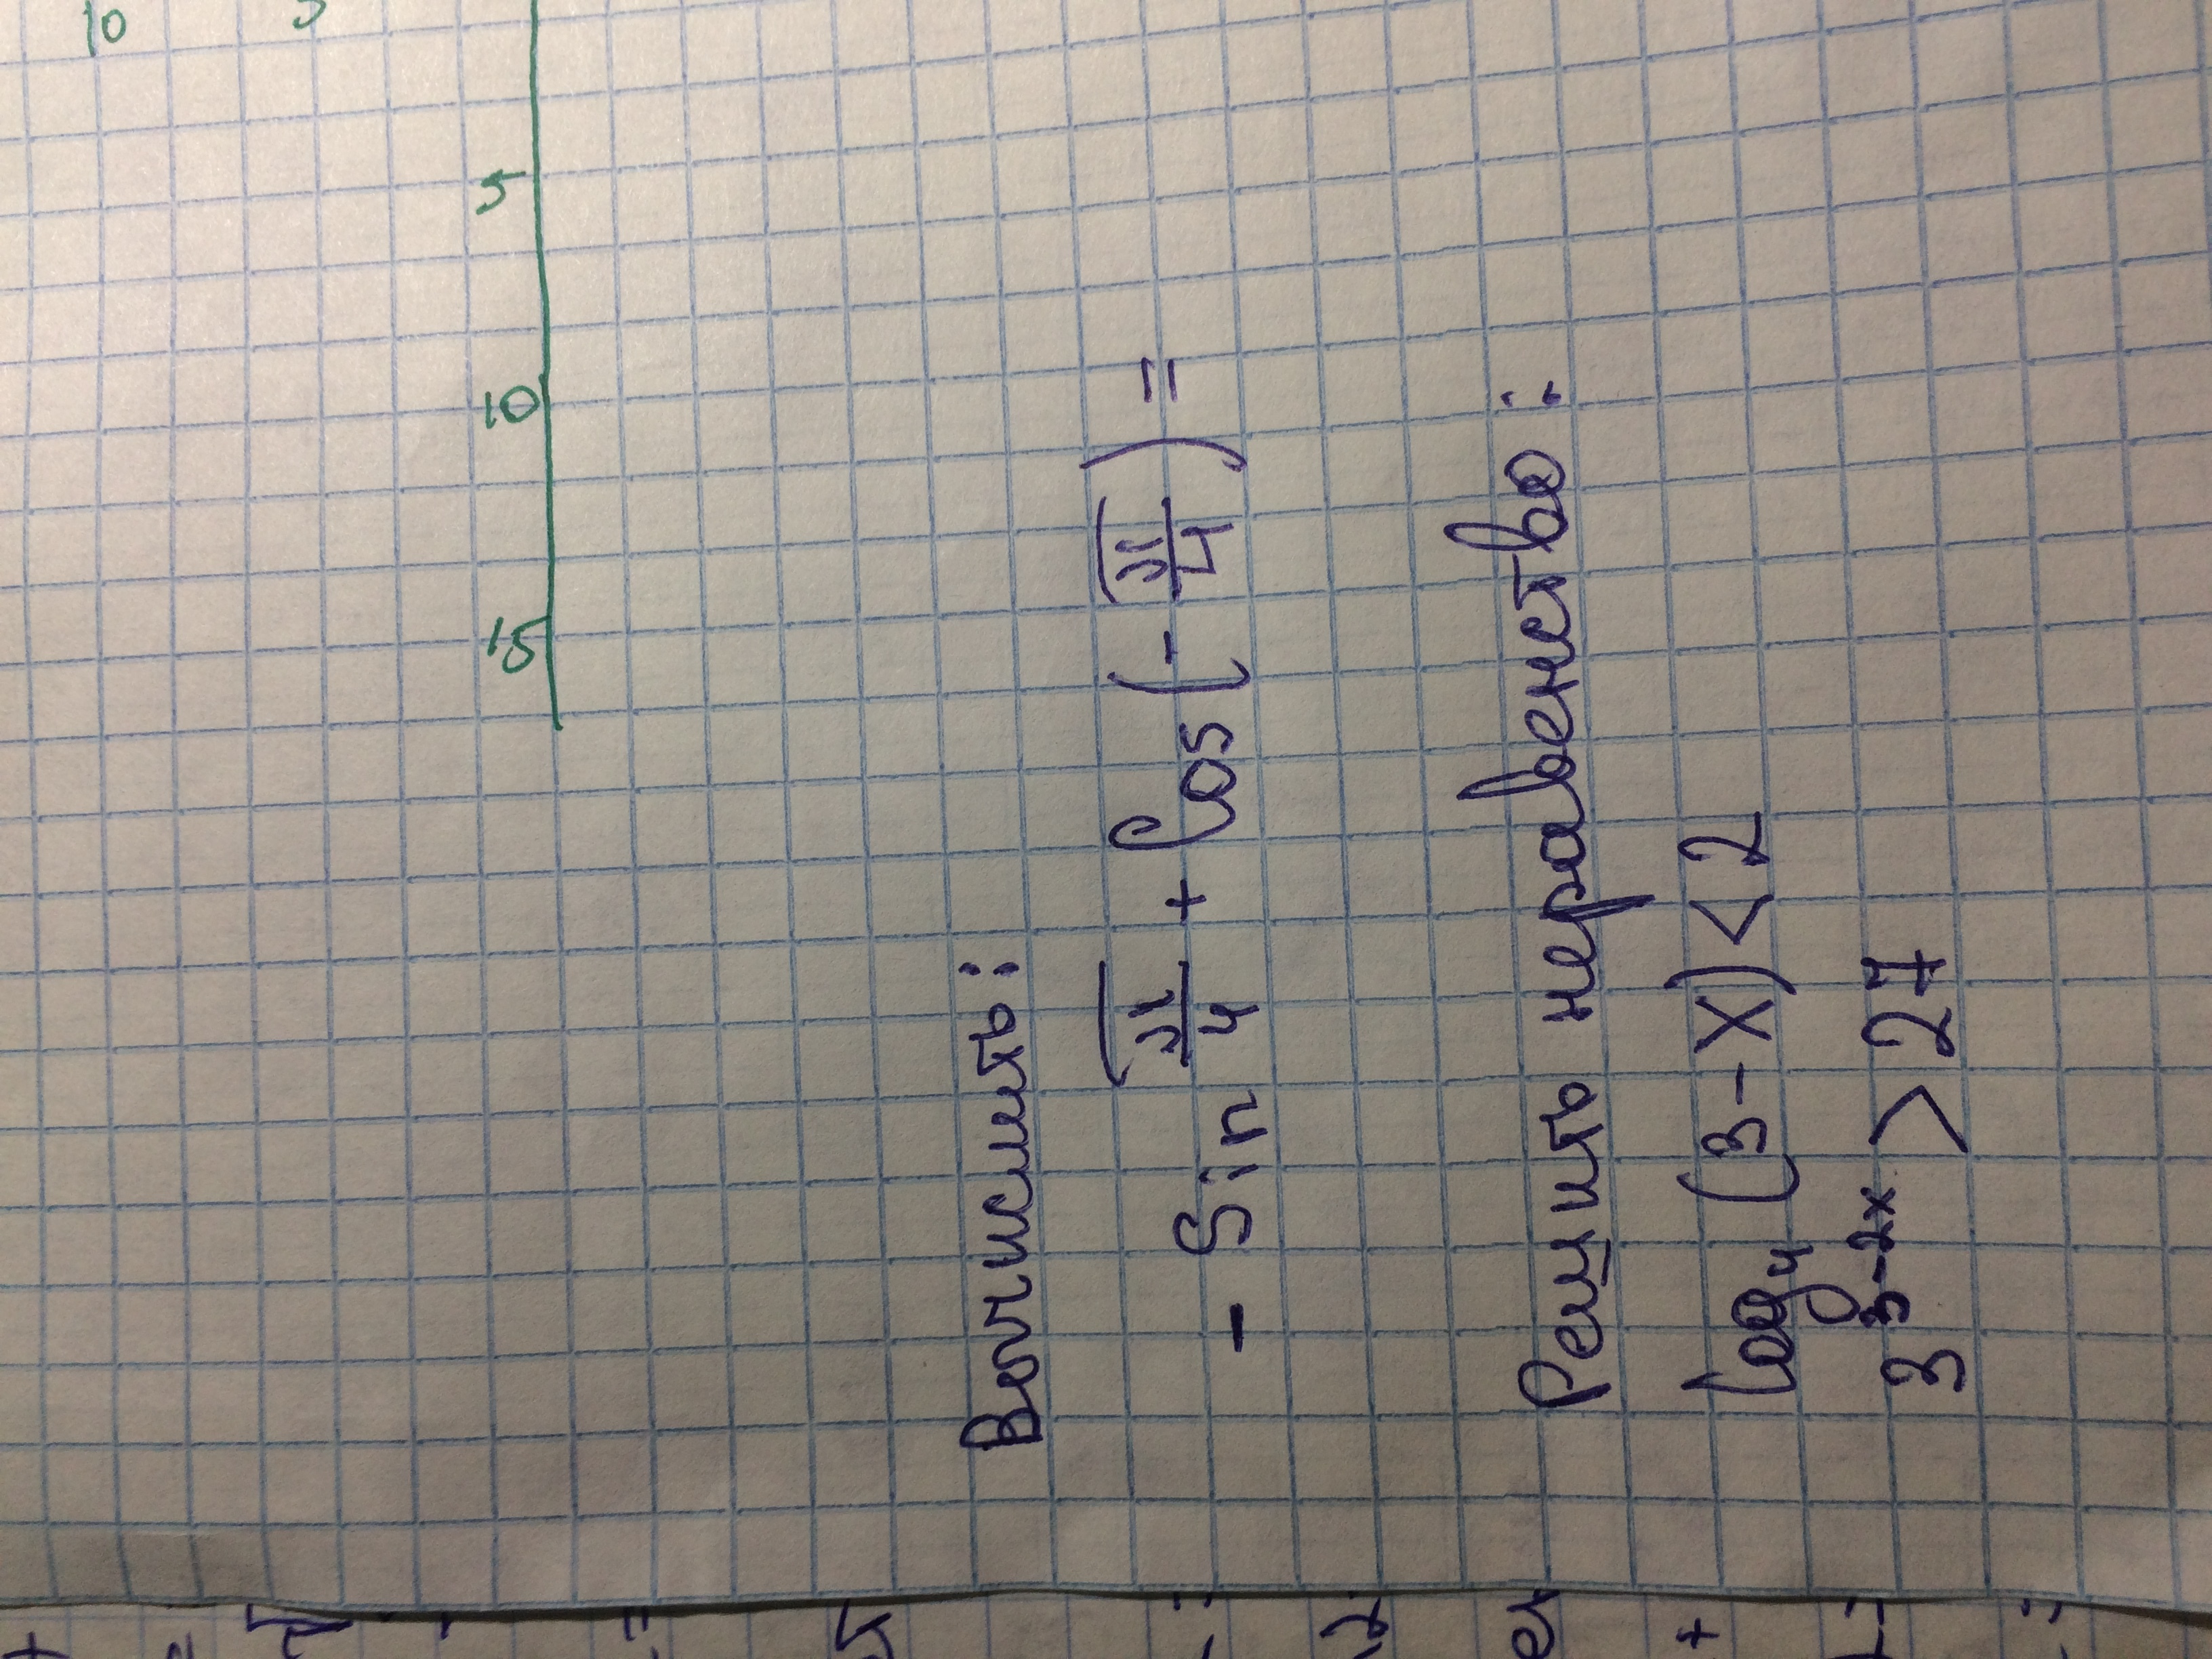 10 5
5
10
15
Вычислить:
- Sin π/4 + Cos (- π/4) =
Решить неравенство:
log₄ (3-x) < 2
3³⁻²ˣ > 27